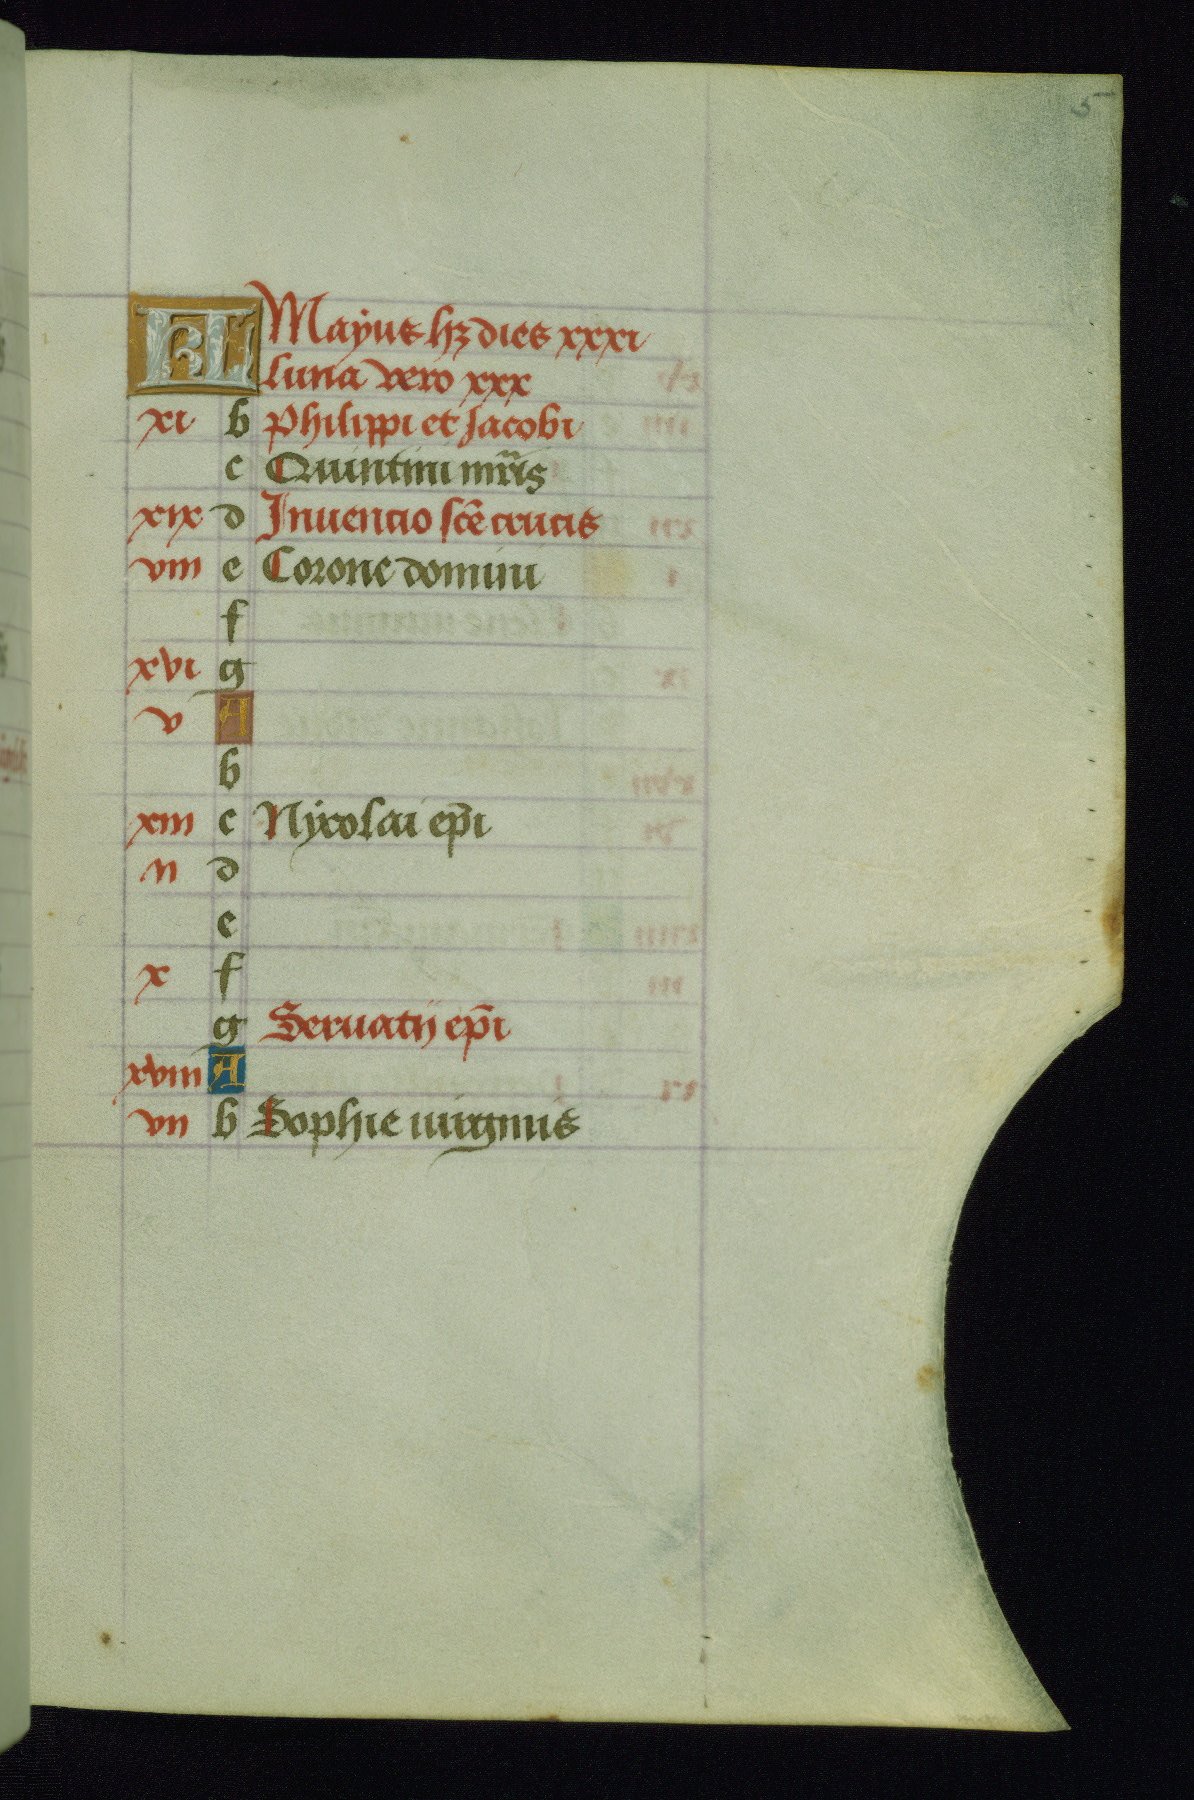 5
KL Mayus hꝫ dies xxxi
luna vero xxx
xi b Philippi et Jacobi
c Quintini mr̃is
xix d Inuencio scẽ crucis
viii e Corone domini
f
xvi g
v A
b
xiii c Nyxolai ep̃i
ii d
e
x f
g Seruatij ep̃i
xviii A
vii b Sophie uirginis